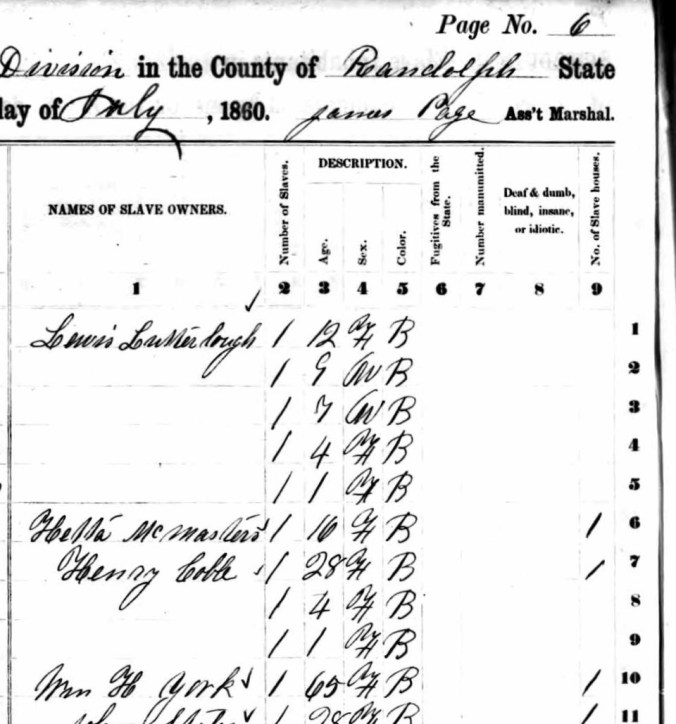 Page No. 6
Division in the County of Randolph State
day of July, 1860. James Page Ass't Marshal.
NAMES OF SLAVE OWNERS. Number of Slaves. DESCRIPTION. Age. Sex. Color. Fugitives from the State. Number manumitted. Deaf & dumb, blind, insane, or idiotic. No. of Slave houses.
1 2 3 4 5 6 7 8 9
Lewis Lutterlough 1 12 F B 1
1 9 M B 2
1 7 M B 3
1 4 F B 4
1 1 F B 5
Hetta McMasters 1 16 F B 1 6
Henry Coble 1 28 F B 1 7
1 4 F B 8
1 1 F B 9
Wm H York 1 65 F B 1 10
1 28 F B 1 11